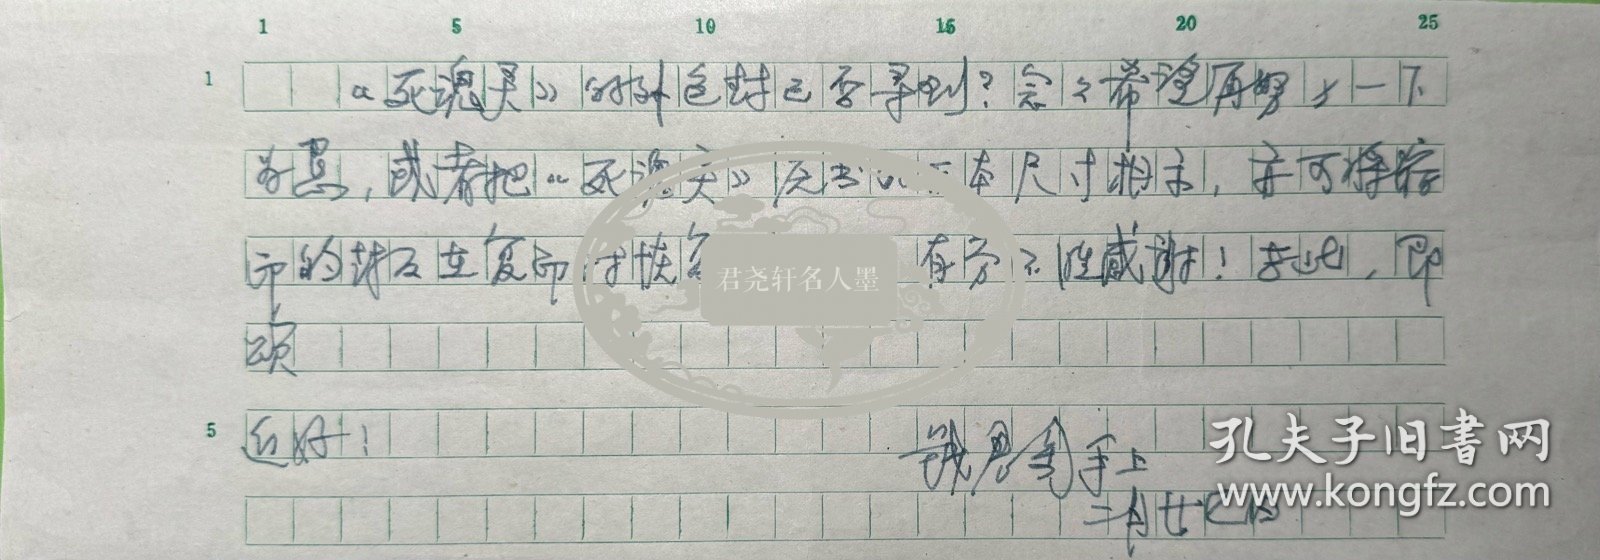 1 5 10 15 20 25
1 《死魂灵》的外包封已否寻到?念之希望再努力一下
为恳,或者把《死魂灵》尺寸相示,亦可将
印的封及在复印时恢复 有劳不胜感谢!专此,即
颂
5 近好!
钱君匋手上
二月廿七日
君尧轩名人墨
孔夫子旧书网
www.kongfz.com